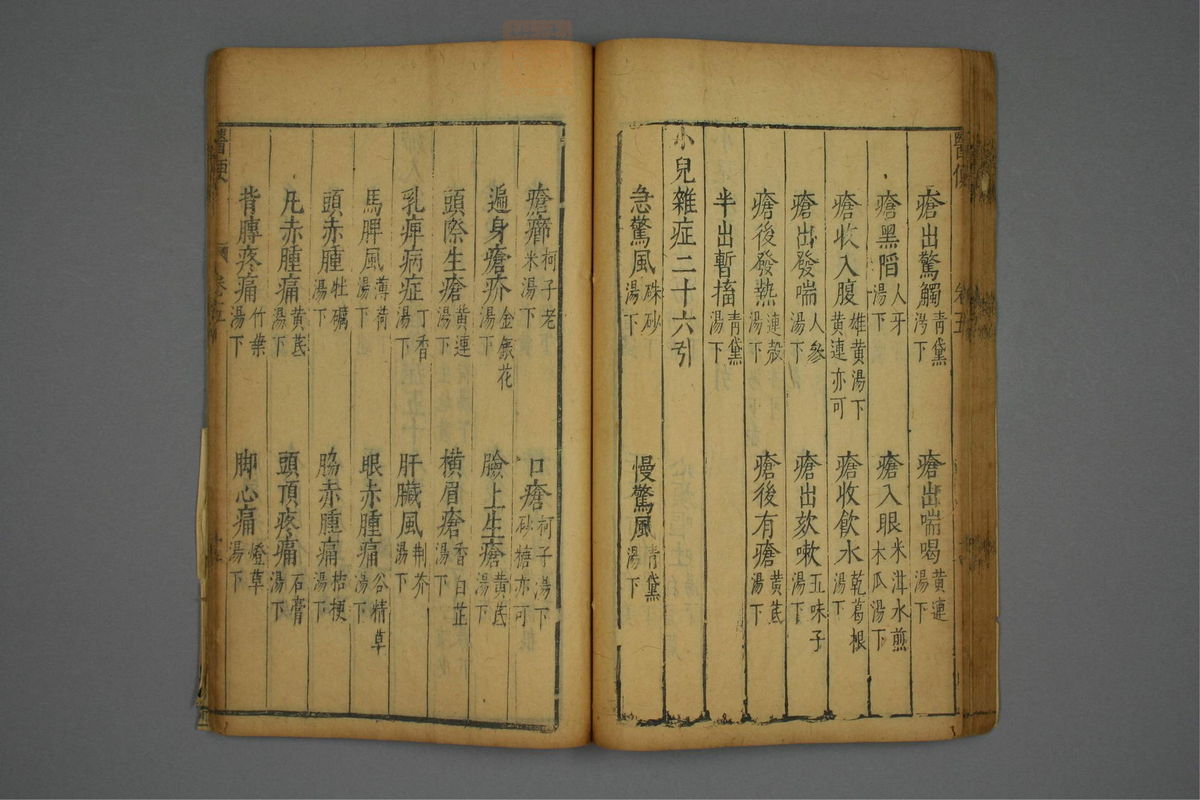 醫便
卷五
瘡出驚觸 青黛湯下 瘡出喘喝 黃連湯下
瘡黑陷 人牙湯下 瘡入眼 米泔水煎木瓜湯下
瘡收入腹 雄黃湯下黃連亦可 瘡收飲水 乾葛根湯下
瘡出發喘 人參湯下 瘡出欬嗽 五味子湯下
瘡後發熱 連殼湯下 瘡後有瘡 黃芪湯下
半出暫搐 青黛湯下
小兒雜症二十六引
急驚風 硃砂湯下 慢驚風 青黛湯下
瘡癤 柯子老米湯下 口瘡 柯子湯下砂糖亦可
遍身瘡疥 金銀花湯下 臉上生瘡 黃芪湯下
頭際生瘡 黃連湯下 橫眉瘡 香白芷湯下
乳痺病症 丁香湯下 肝臟風 荆芥湯下
馬脾風 薄荷湯下 眼赤腫痛 谷精草湯下
頭赤腫 牡礪湯下 脇赤腫痛 桔梗湯下
凡赤腫痛 黃芪湯下 頭頂疼痛 石膏湯下
背膊疼痛 竹葉湯下 脚心痛 燈草湯下
醫便
卷五